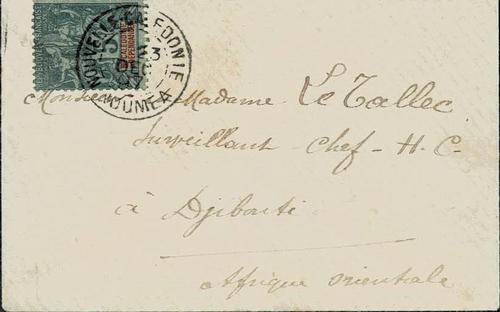 NOUVELLE-CALEDONIE
NOUMEA
Monsieur Madame Le Tallec
Surveillant Chef - H. C.
à Djibouti
Afrique Orientale